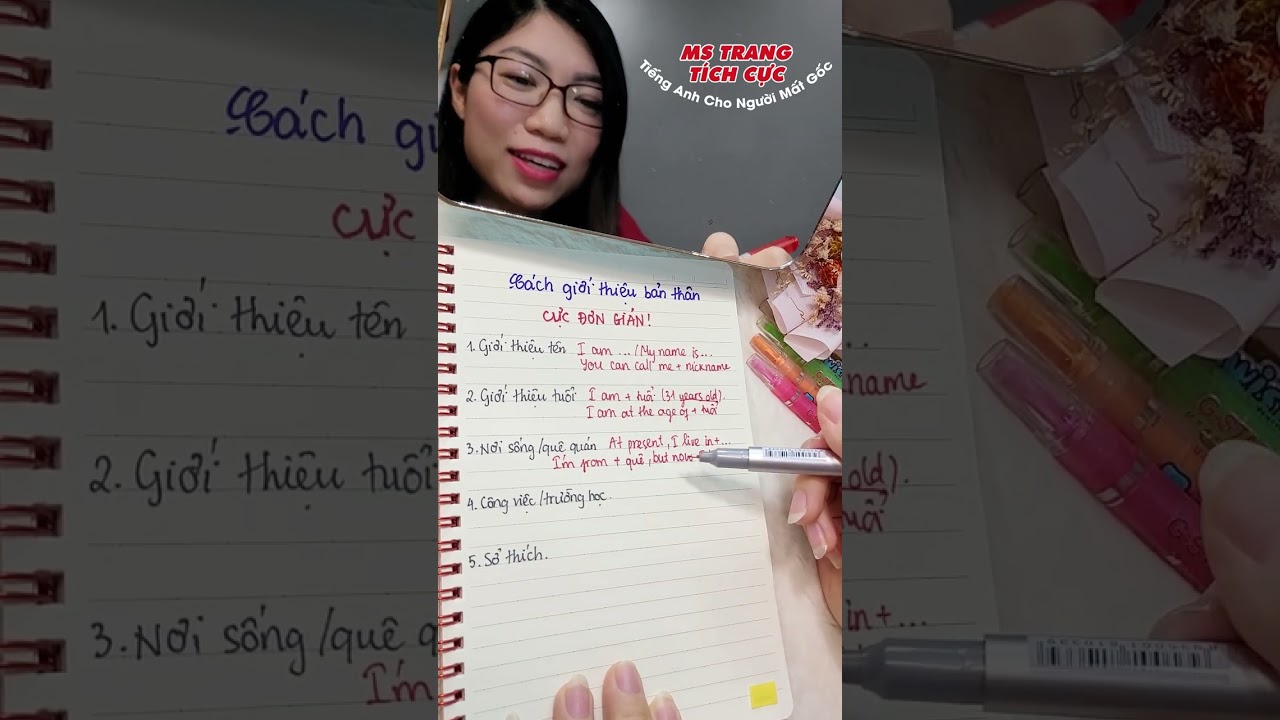 MS TRANG
TÍCH CỰC
Tiếng Anh Cho Người Mất Gốc
Cách giới thiệu bản thân
CỰC ĐƠN GIẢN!
1. Giới thiệu tên I am ... / My name is ...
You can call me + nickname
2. Giới thiệu tuổi I am + tuổi (31 years old).
I am at the age of + tuổi
3. Nơi sống/quê quán At present, I live in + ...
I'm from + quê, but now
4. Công việc/trường học.
5. Sở thích.